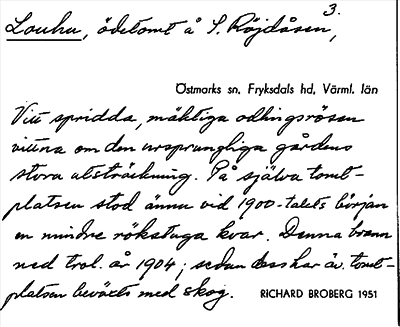 3.
Louhu, ödetomt å S. Röjdåsen,
Östmarks sn, Fryksdals hd, Värml. län
Vitt spridda, mäktiga odlingsrösen
vittna om den ursprungliga gårdens
stora utsträckning. På själva tomt-
platsen stod ännu vid 1900-talets början
en mindre rökstuga kvar. Denna brann
ned trol. år 1904; sedan dess har äv. tomt-
platsen beväxts med skog.
RICHARD BROBERG 1951